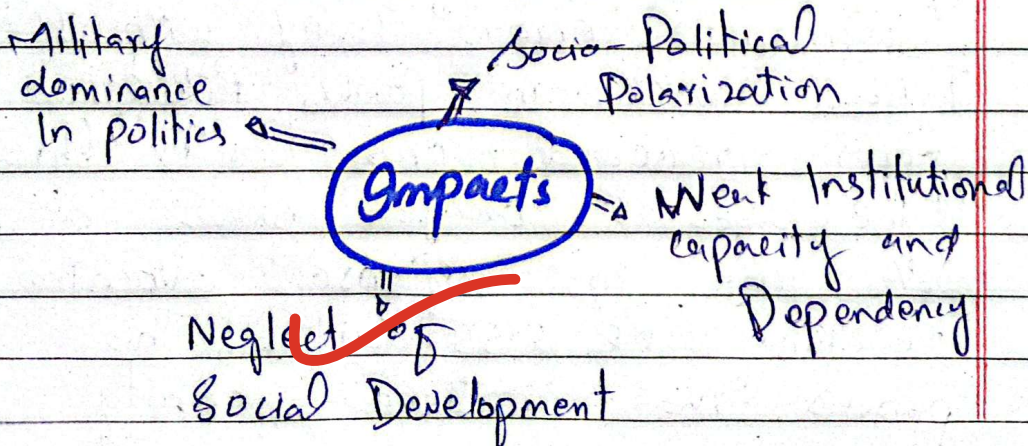 Military
dominance
In politics
Socio-Political
Polarization
Impacts
Weak Institutional
capacity and
Dependency
Neglect of
Social Development